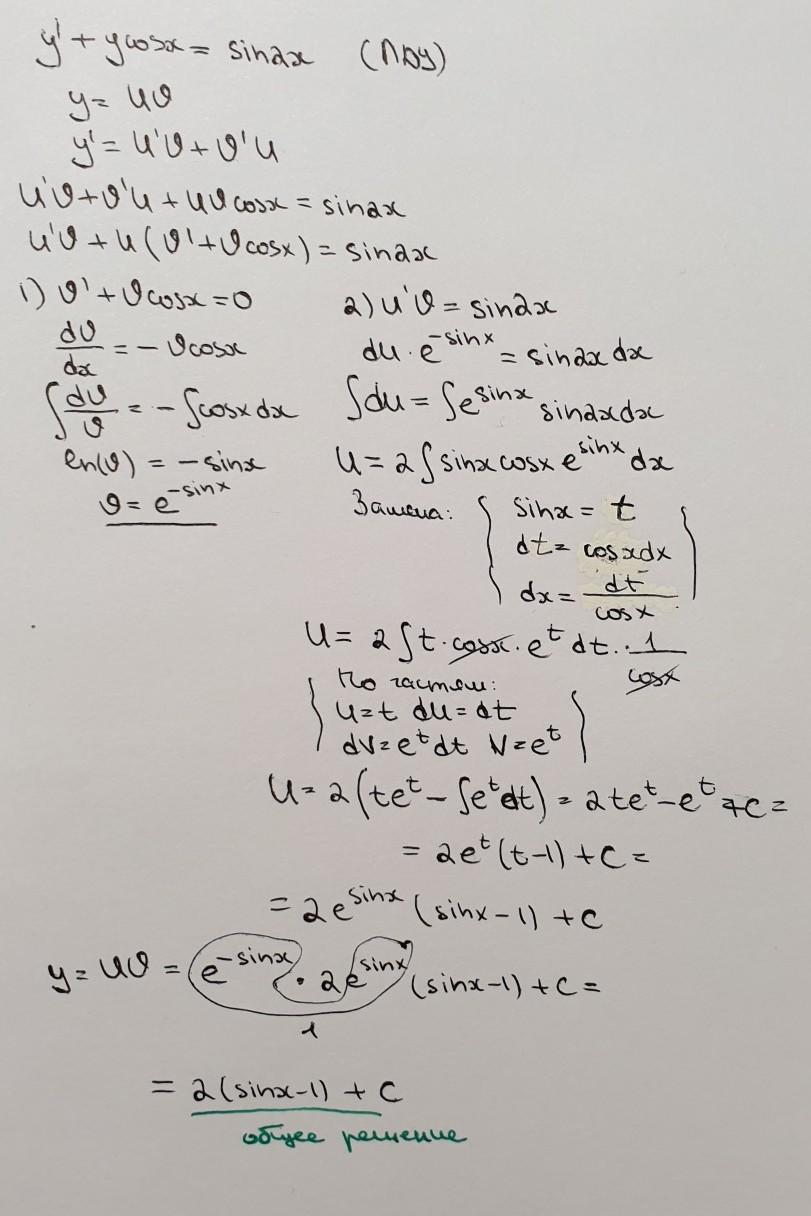 y' + ycosx = sin2x (ЛДУ)
y = uϑ
y' = u'ϑ + ϑ'u
u'ϑ + ϑ'u + uϑcosx = sin2x
u'ϑ + u(ϑ' + ϑcosx) = sin2x
1) ϑ' + ϑcosx = 0
dϑ/dx = -ϑcosx
∫dϑ/ϑ = -∫cosxdx
ln(ϑ) = -sinx
ϑ = e^(-sinx)
2) u'ϑ = sin2x
du · e^(-sinx) = sin2xdx
∫du = ∫e^(sinx) sin2xdx
u = 2∫sinxcosx e^(sinx) dx
Замена: { sinx = t
dt = cosxdx
dx = dt/cosx }
u = 2∫t · cosx · e^t dt · 1/cosx
{ По частям:
u = t du = dt
dv = e^t dt v = e^t }
u = 2(te^t - ∫e^t dt) = 2te^t - e^t + c =
= 2e^t(t-1) + c =
= 2e^(sinx) (sinx-1) + c
y = uϑ = e^(-sinx) · 2e^(sinx) (sinx-1) + c =
1
= 2(sinx-1) + c
общее решение